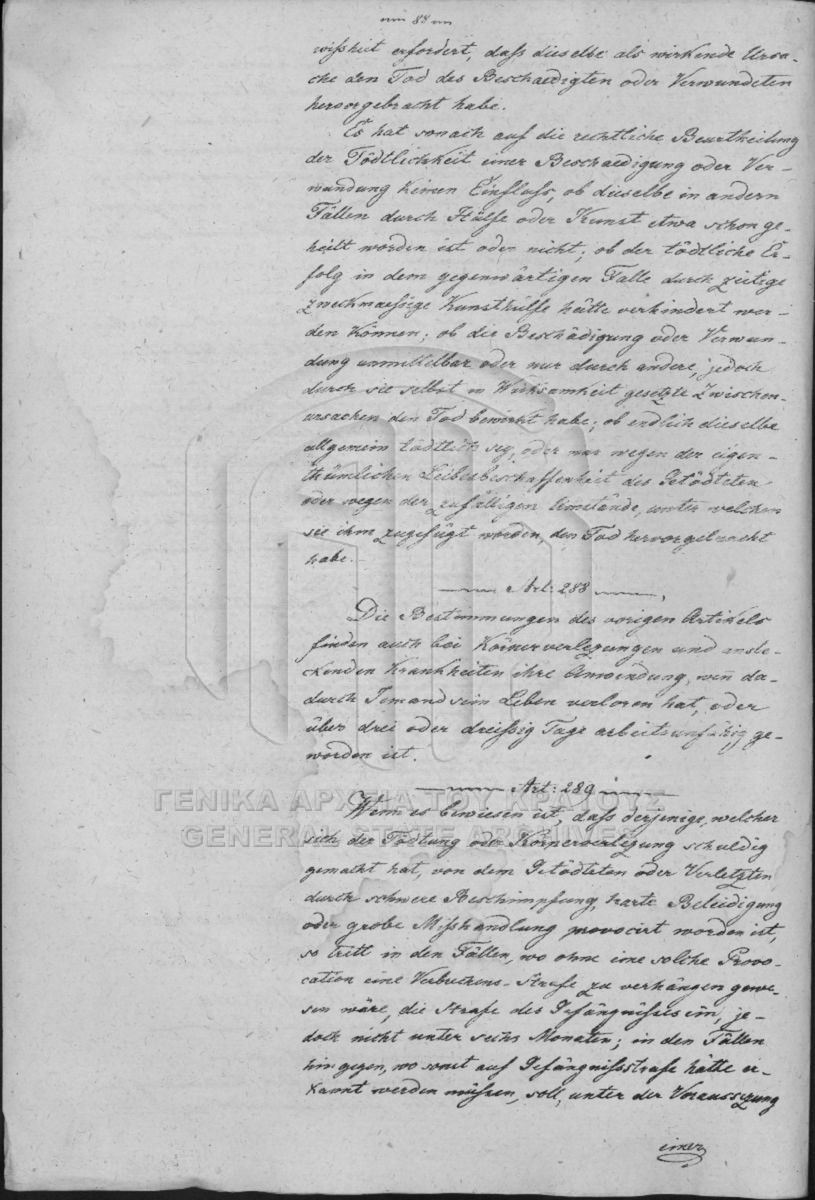 88
wißheit erfordert, dass dieselbe als wirkende Ursa-
che den Tod des Beschaedigten oder Verwundeten
hervorgebracht habe.
Es hat sonach auf die rechtliche Beurtheilung
der Tödtlichkeit einer Beschaedigung oder Ver-
wundung keinen Einfluss, ob dieselbe in andern
Fällen durch Hülfe oder Kunst etwa schon ge-
heilt worden ist oder nicht; ob der tödtliche Er-
folg in dem gegenwärtigen Falle durch zeitige
zweckmaessige Kunsthülfe hätte verhindert wer-
den können; ob die Beschädigung oder Verwun-
dung unmittelbar oder nur durch andere, jedoch
durch sie selbst in Wirksamkeit gesetzte Zwischen-
ursachen den Tod bewirkt habe; ob endlich dieselbe
allgemein tödtlich sey, oder nur wegen der eigen-
thümlichen Leibesbeschaffenheit des Getödteten
oder wegen der zufälligen Umstände, unter welchen
sie ihm zugefügt worden, den Tod hervorgebracht
habe.
Art: 288
Die Bestimmungen des vorigen Artikels
finden auch bei Körperverlezungen und anste-
ckenden Krankheiten ihre Anwendung, weñ da-
durch Jemand sein Leben verloren hat, oder
über drei oder dreissig Tage arbeitsunfähig ge-
worden ist.
Art: 289
ΓΕΝΙΚΑ ΑΡΧΕΙΑ ΤΟΥ ΚΡΑΤΟΥΣ
GENERAL STATE ARCHIVES
Wenn es bewiesen ist, dass derjenige, welcher
sich der Tödtung oder Körperverlezung schuldig
gemacht hat, von dem Getödteten oder Verletzten
durch schwere Beschimpfung, harte Beleidigung
oder grobe Mißhandlung provocirt worden ist,
so tritt in den Fällen, wo ohne eine solche Provo-
cation eine Verbrechens-Strafe zu verhängen gewe-
sen wäre, die Strafe des Gefängnisses ein, je-
doch nicht unter sechs Monaten; in den Fällen
hingegen, wo sonst auf Gefängnißstrafe hätte er-
kannt werden müssen, soll, unter der Voraussezung
einer